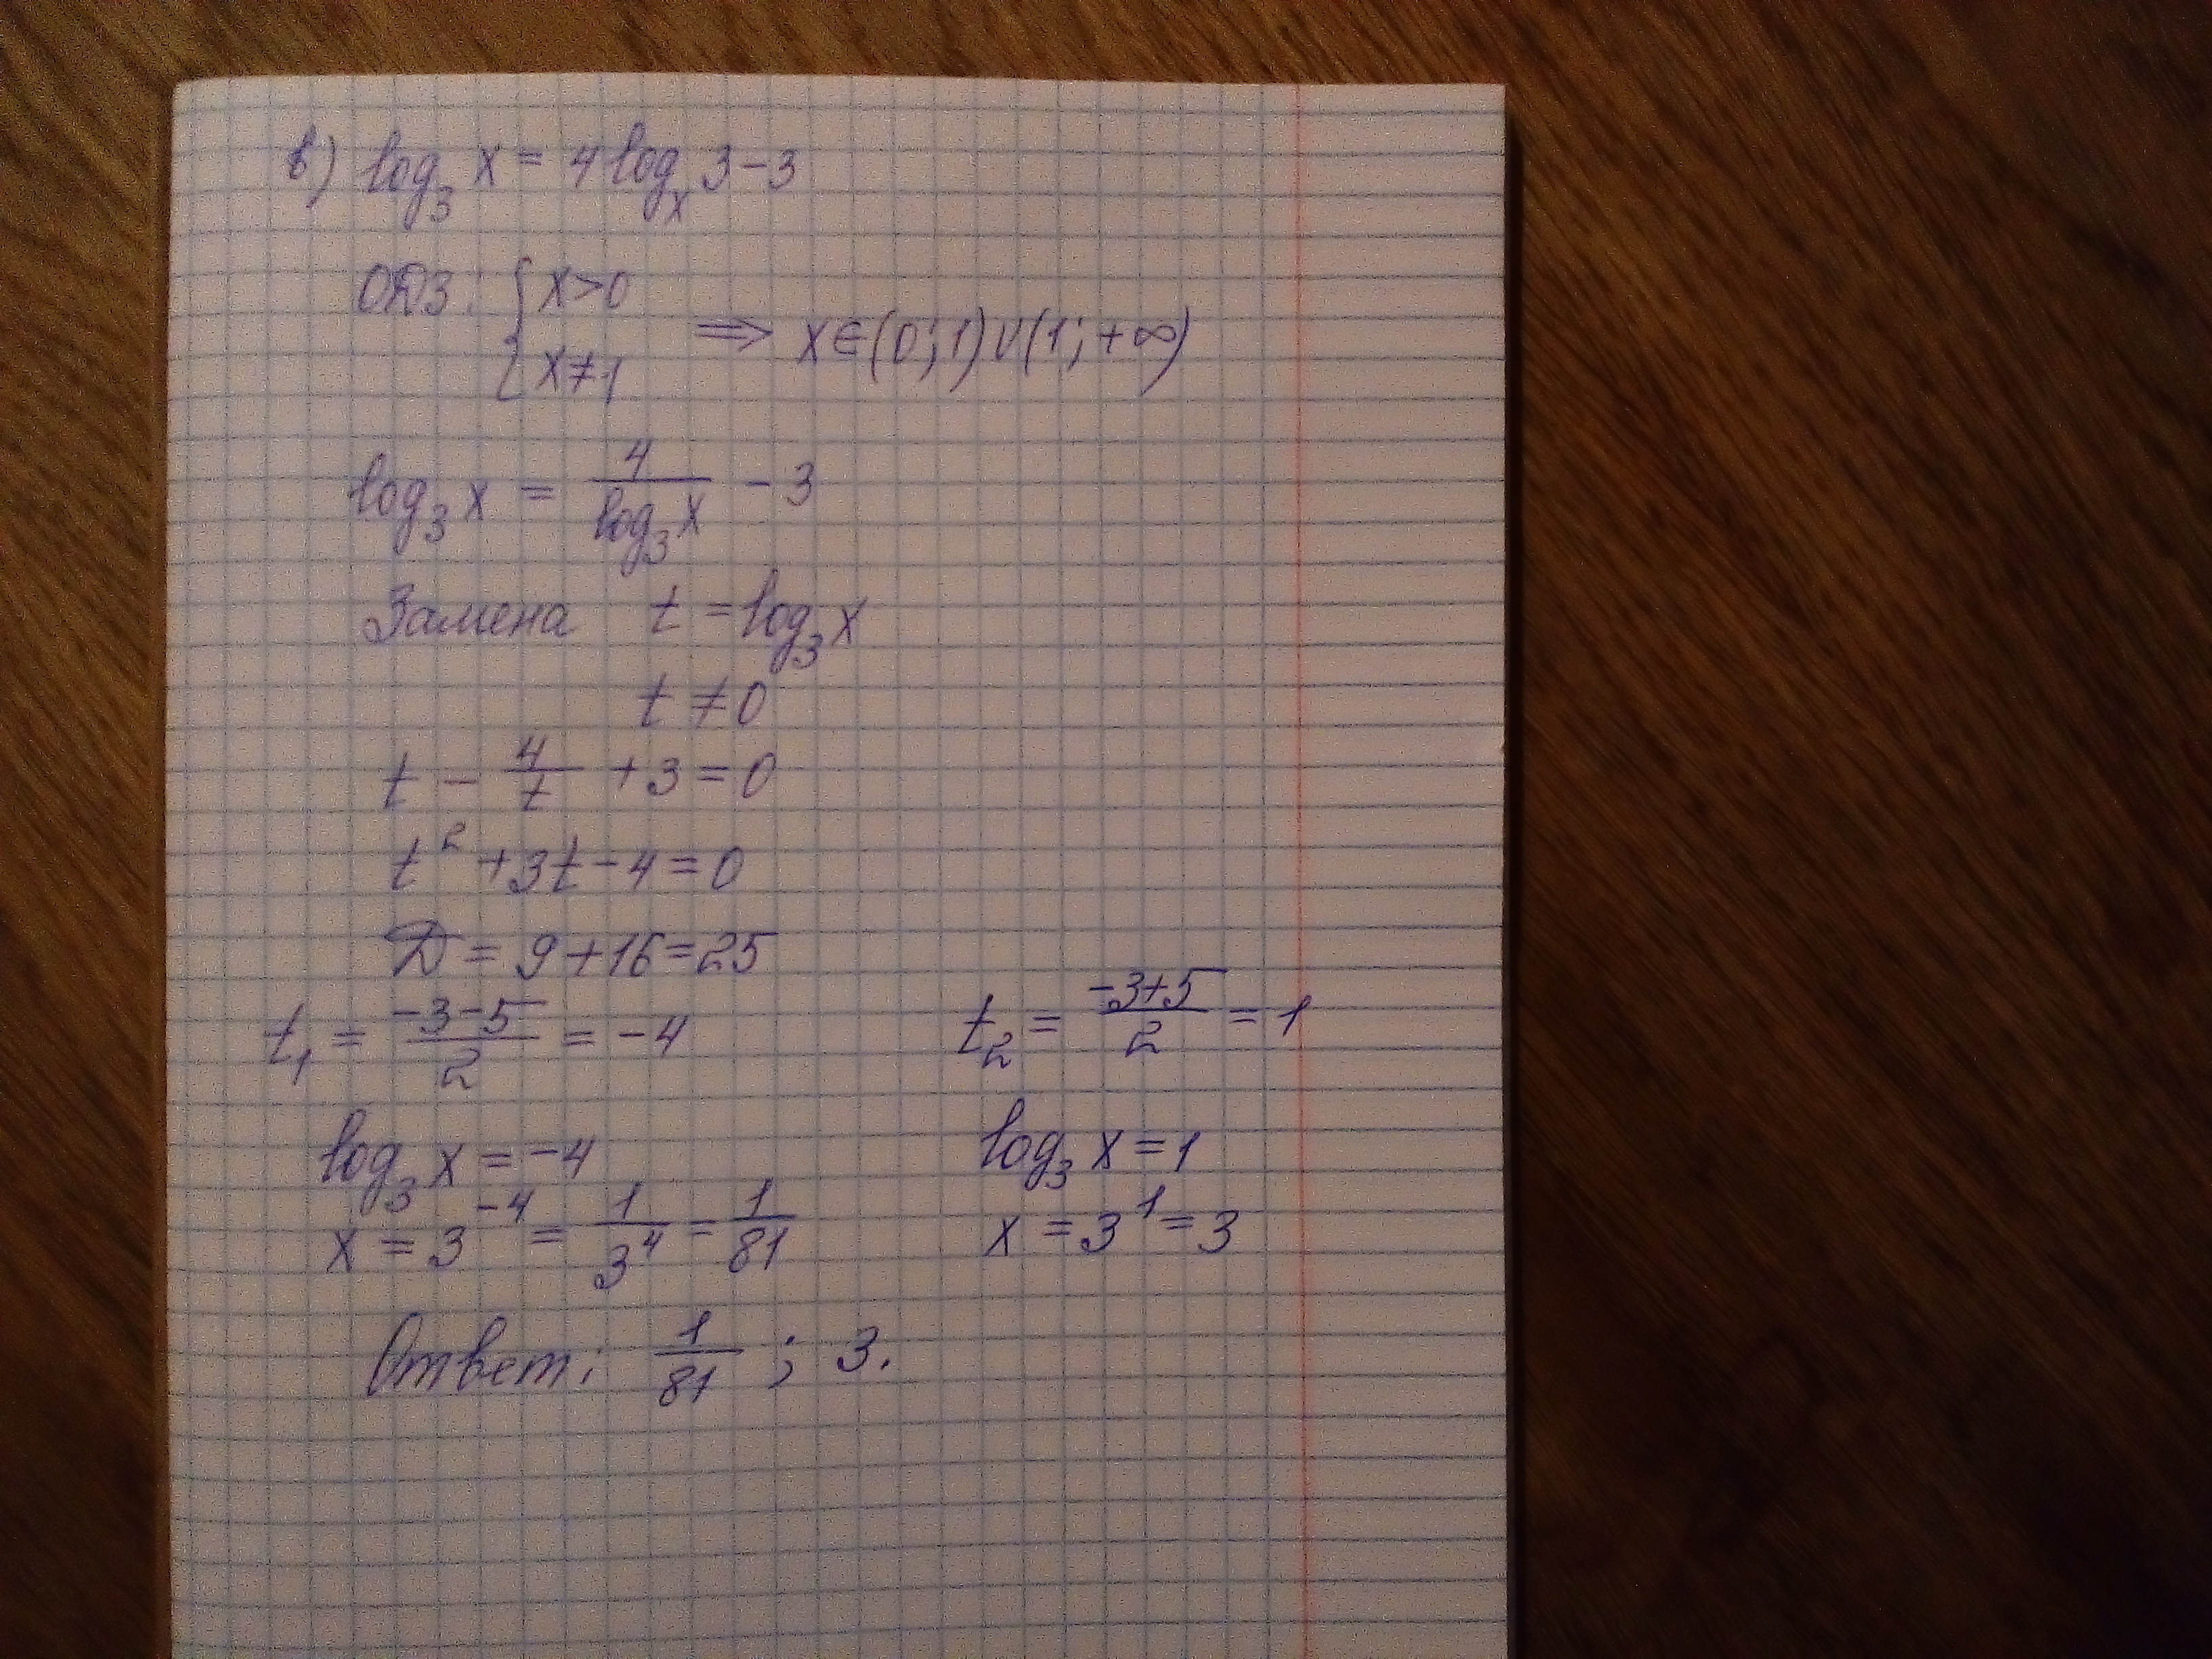 в) log₃ x = 4 logₓ 3 - 3
ОДЗ: { x > 0
x ≠ 1 ⟹ x ∈ (0; 1) ∪ (1; +∞)
log₃ x = 4 / log₃ x - 3
Замена t = log₃ x
t ≠ 0
t - 4/t + 3 = 0
t² + 3t - 4 = 0
D = 9 + 16 = 25
t₁ = (-3-5)/2 = -4 t₂ = (-3+5)/2 = 1
log₃ x = -4 log₃ x = 1
x = 3⁻⁴ = 1/3⁴ = 1/81 x = 3¹ = 3
Ответ: 1/81 ; 3.